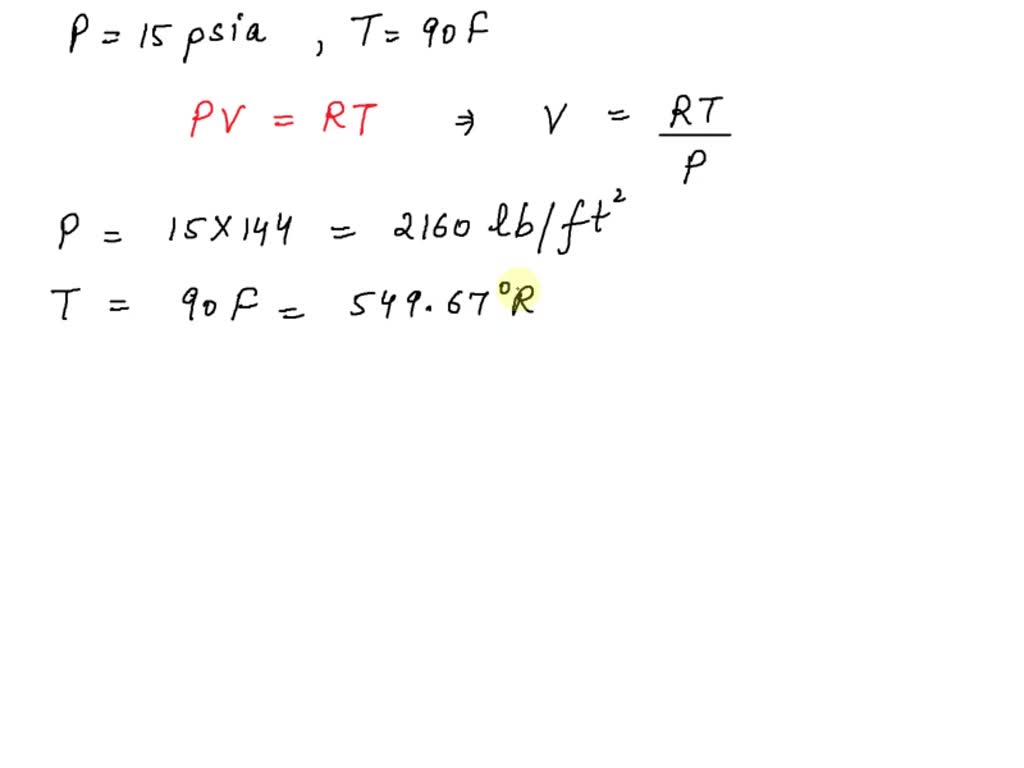 P = 15 psia , T = 90F
PV = RT ⇒ V = RT/P
P = 15 X 144 = 2160 lb/ft²
T = 90F = 549.67°R